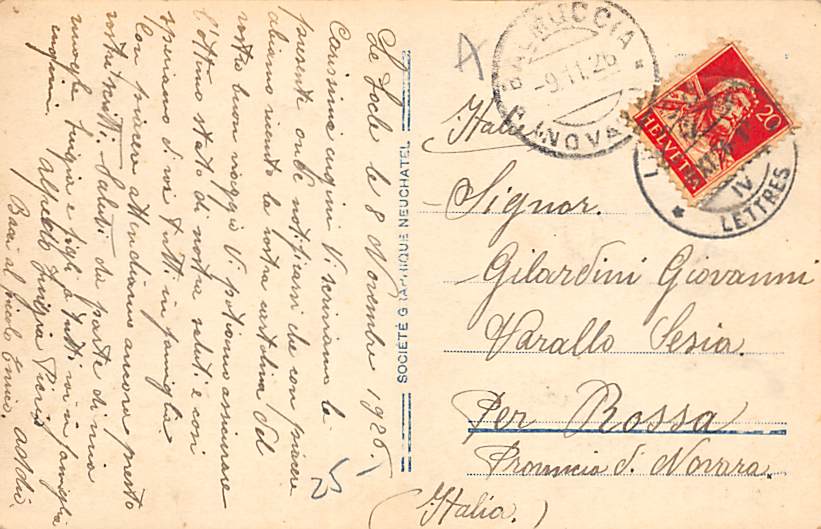 Le Locle le 8 Novembre 1926.
Carissimi cugini Vi scriviamo la
presente onde notificarvi che con piacere
abiamo ricevuto la vostra cartolina del
vostro buon viaggio Vi potiamo assicurare
l'ottimo stato di nostra salute e così
speriamo di voi tutti in famiglia
Con piacere attendiamo ancora presto
vostri scritti. Saluti da parte di mia
moglie Luigia e figli a tutti voi in famiglia
cugini. Alfredo Luigia Pierin
Baci al picolo Ennio. addio.
SOCIÉTÉ GRAPHIQUE NEUCHATEL
A
BALMUCCIA
-9.11.26
(NOVARA)
HELVETIA
20
XI
IV
LETTRES
Italie
Signor.
Gilardini Giovanni
Varallo Sesia.
Per Rossa
Provincia d. Novara.
(Italia.)